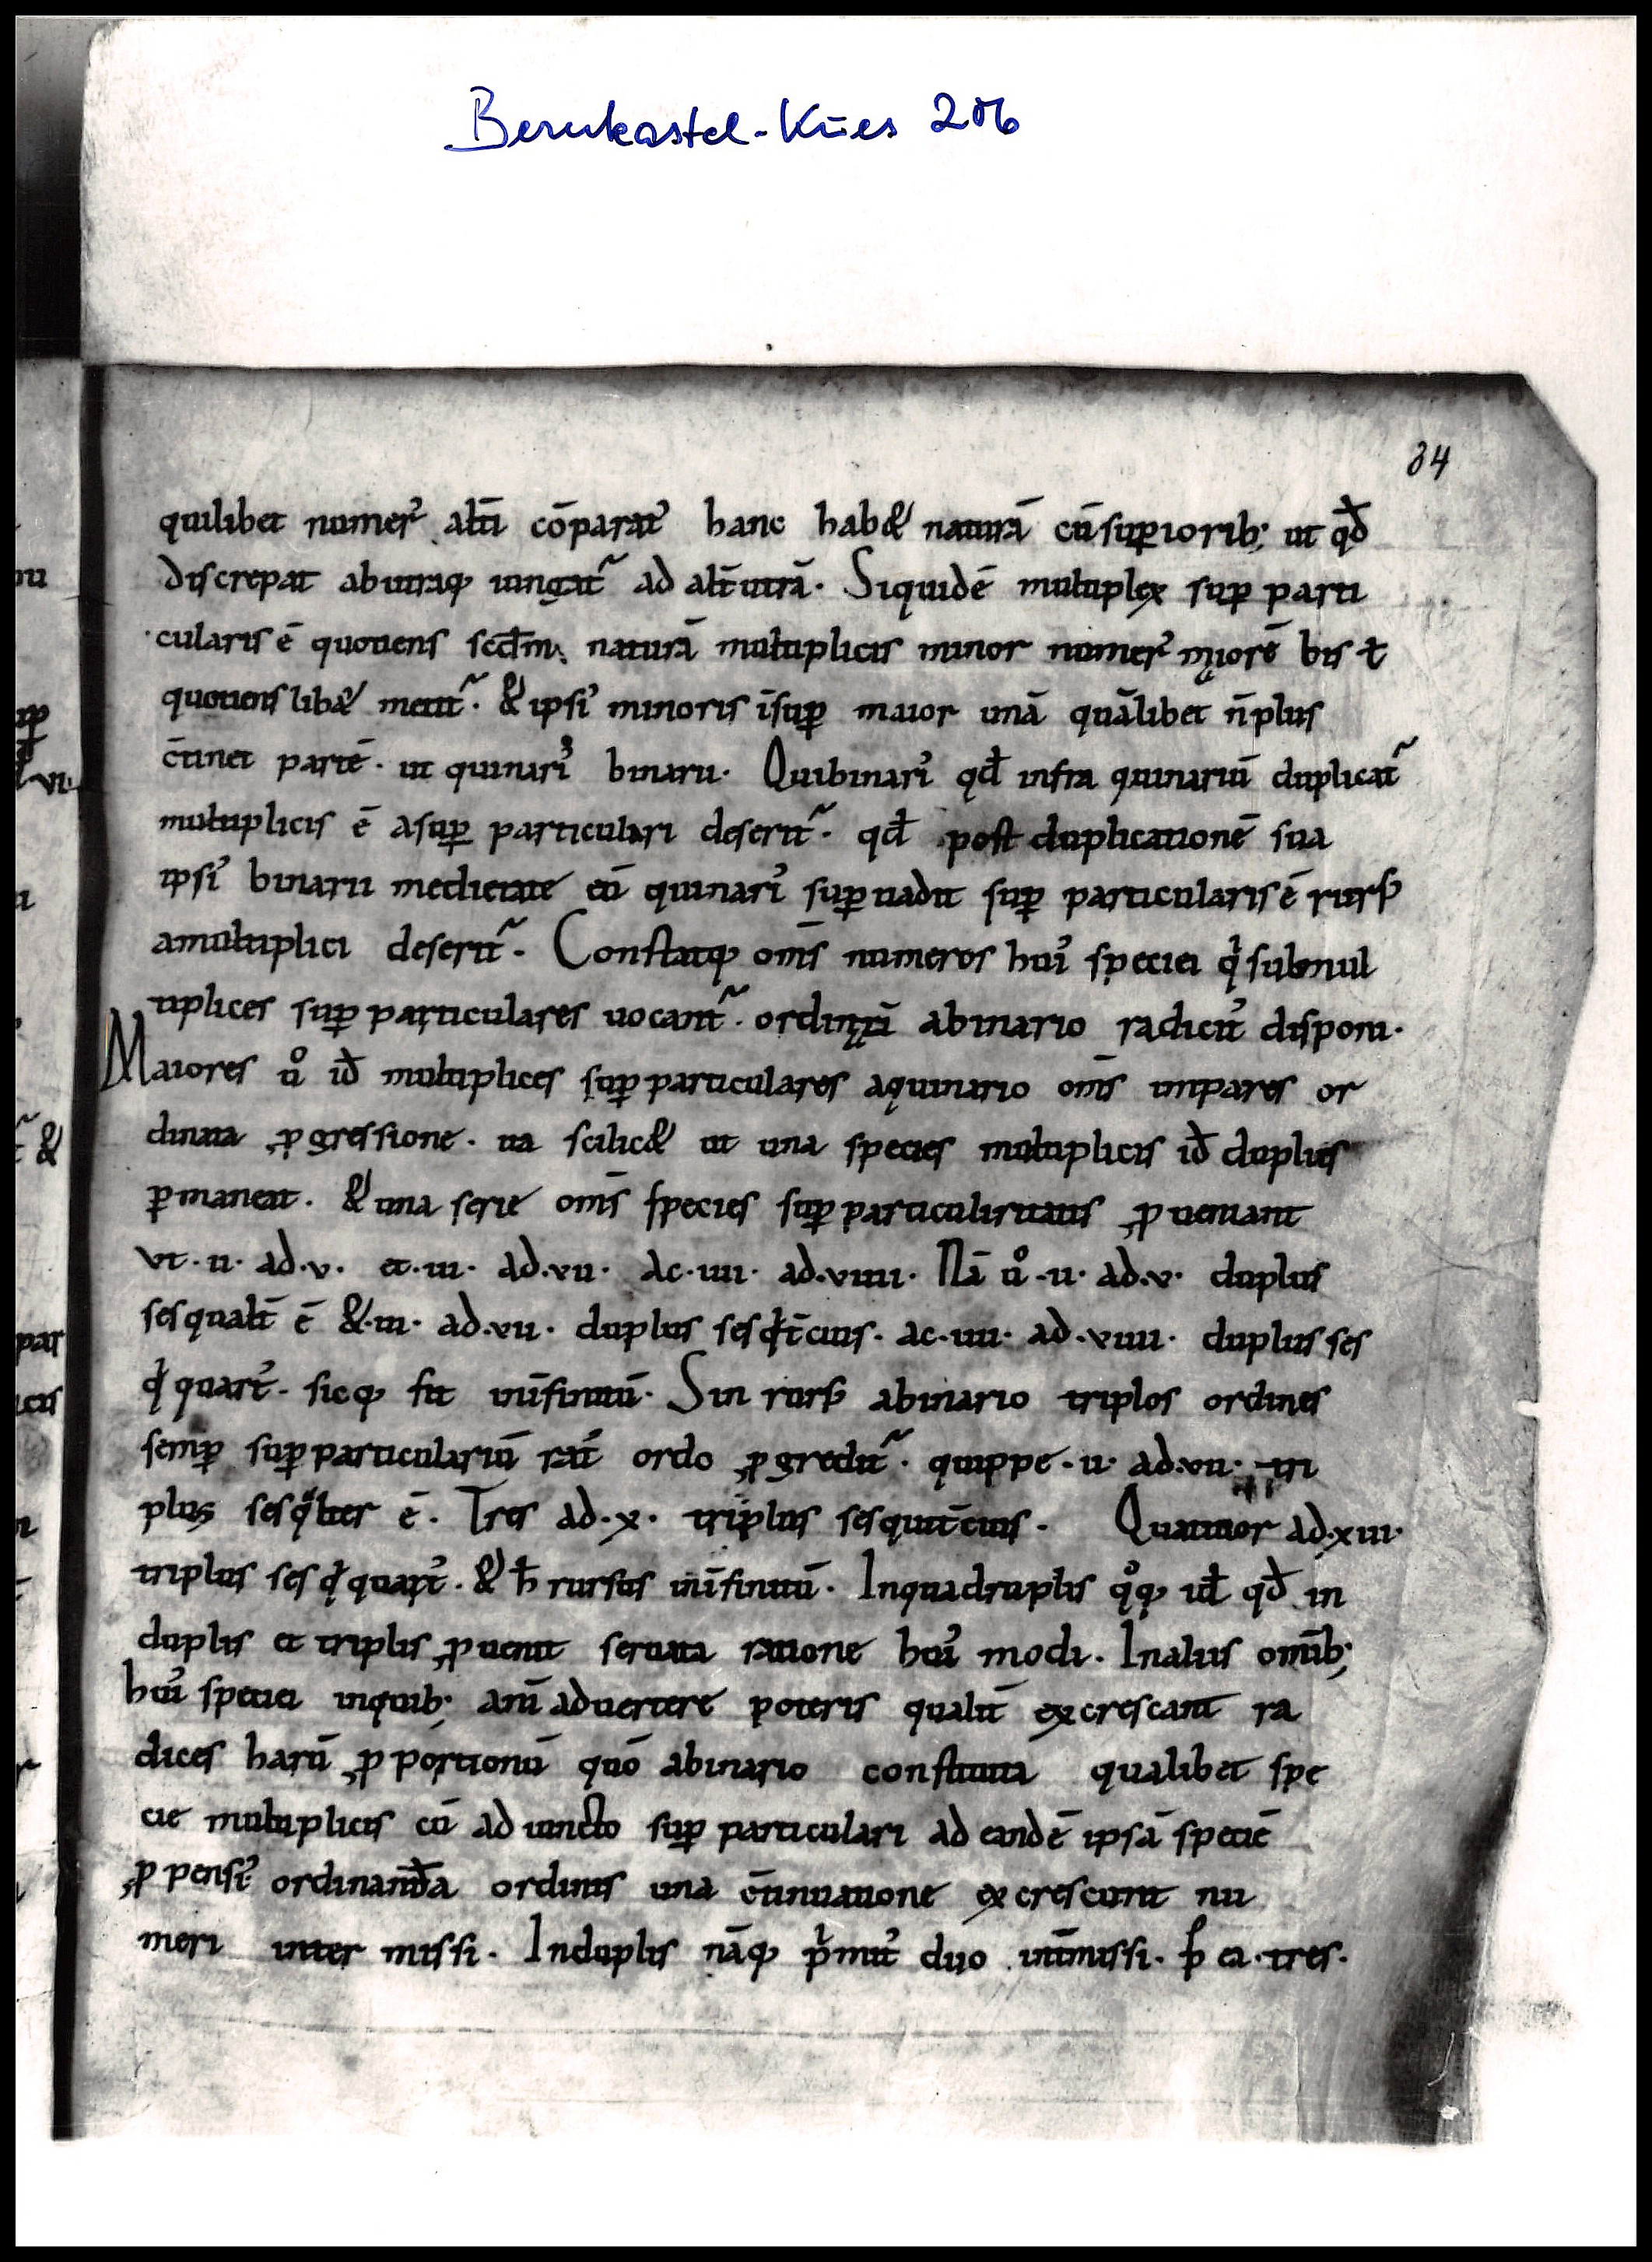 Bernkastel-Kues 206
34
quilibet numer᾽ alt̄i cōparat᾽ hanc hab& naturā cū sup̱iorib; ut qđ
discrepat ab utraq; iungat᷑ ad alt̄utrā. Siquidē multiplex sup̱ parti
cularis ē quotiens scđm naturā multiplicis minor numer᾽ maiorē bis ł
quotiens lib& metit᷑. & ipsi᾽ minoris īsup̱ maior unā quālibet n̄ plus
c̄tinet partē. ut quinari᾽ binarii. Qui binari᾽ qđ infra quinariū duplicat᷑
multiplicis ē a sup̱ particulari deserit᷑. qđ post duplicationē sua
ipsi᾽ binarii medietate eū quinari᾽ sup̱ uadit sup̱ particularis ē rurs᾽
a multiplici deserit᷑. Constatq; om̄s numeros hui᾽ speciei q submul
tiplices sup̱ particulares uocant᷑. ordinatī a binario radicit᾽ disponi.
Maiores ů iđ multiplices sup̱ particulares a quinario om̄s impares or
dinata ꝓgressione. ita scilic& ut una species multiplicis iđ duplus
p̱maneat. & una serie om̄s species sup̱ particularitatis ꝓueniant
vt .ii. ad .v. et .iii. ad .vii. ac .iiii. ad .viiii. Nā ů .ii. ad .v. duplus
sesqualt̄ ē &.iii. ad .vii. duplus sesqt̄cius. ac .iiii. ad .viiii. duplus ses
q quart᾽. sicq; fit in īfinitū. Sin rurs᾽ a binario triplos ordines
semp̱ sup̱ particulariū rat᾽ ordo ꝓgredit᷑. quippe .ii. ad .vii. tri
plus sesqlter ē. Tres ad .x. triplus sesquit̄cius. Quattuor ad .xiii.
triplus ses q quart᾽. & ħ rursus in īfinitū. In quadruplis qͦq; iđ qđ in
duplis et triplis ꝓuenit seruata ratione hui᾽ modi. In aliis om̄ib;
hui᾽ speciei in quib; anī aduertere poteris qualit̄ excrescant ra
dices harū ꝓportionū quō a binario constituta qualibet spe
cie multiplicis cū adiuncto sup̱ particulari ad eandē ipsā speciē
ꝓpensi᾽ ordinanđa ordinis una c̄tinuatione excrescunt nu
meri inter missi. In duplis nāq; pmit᾽ duo int̄missi. p᾽ ea .tres.